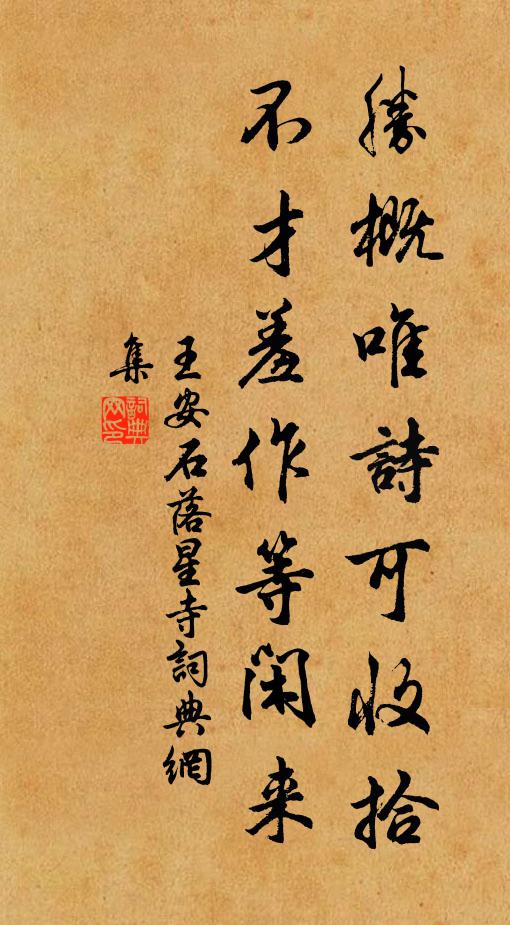 勝概唯詩可收拾
不才羞作等閑来
王安石落星寺詞典網
集
詞典網印